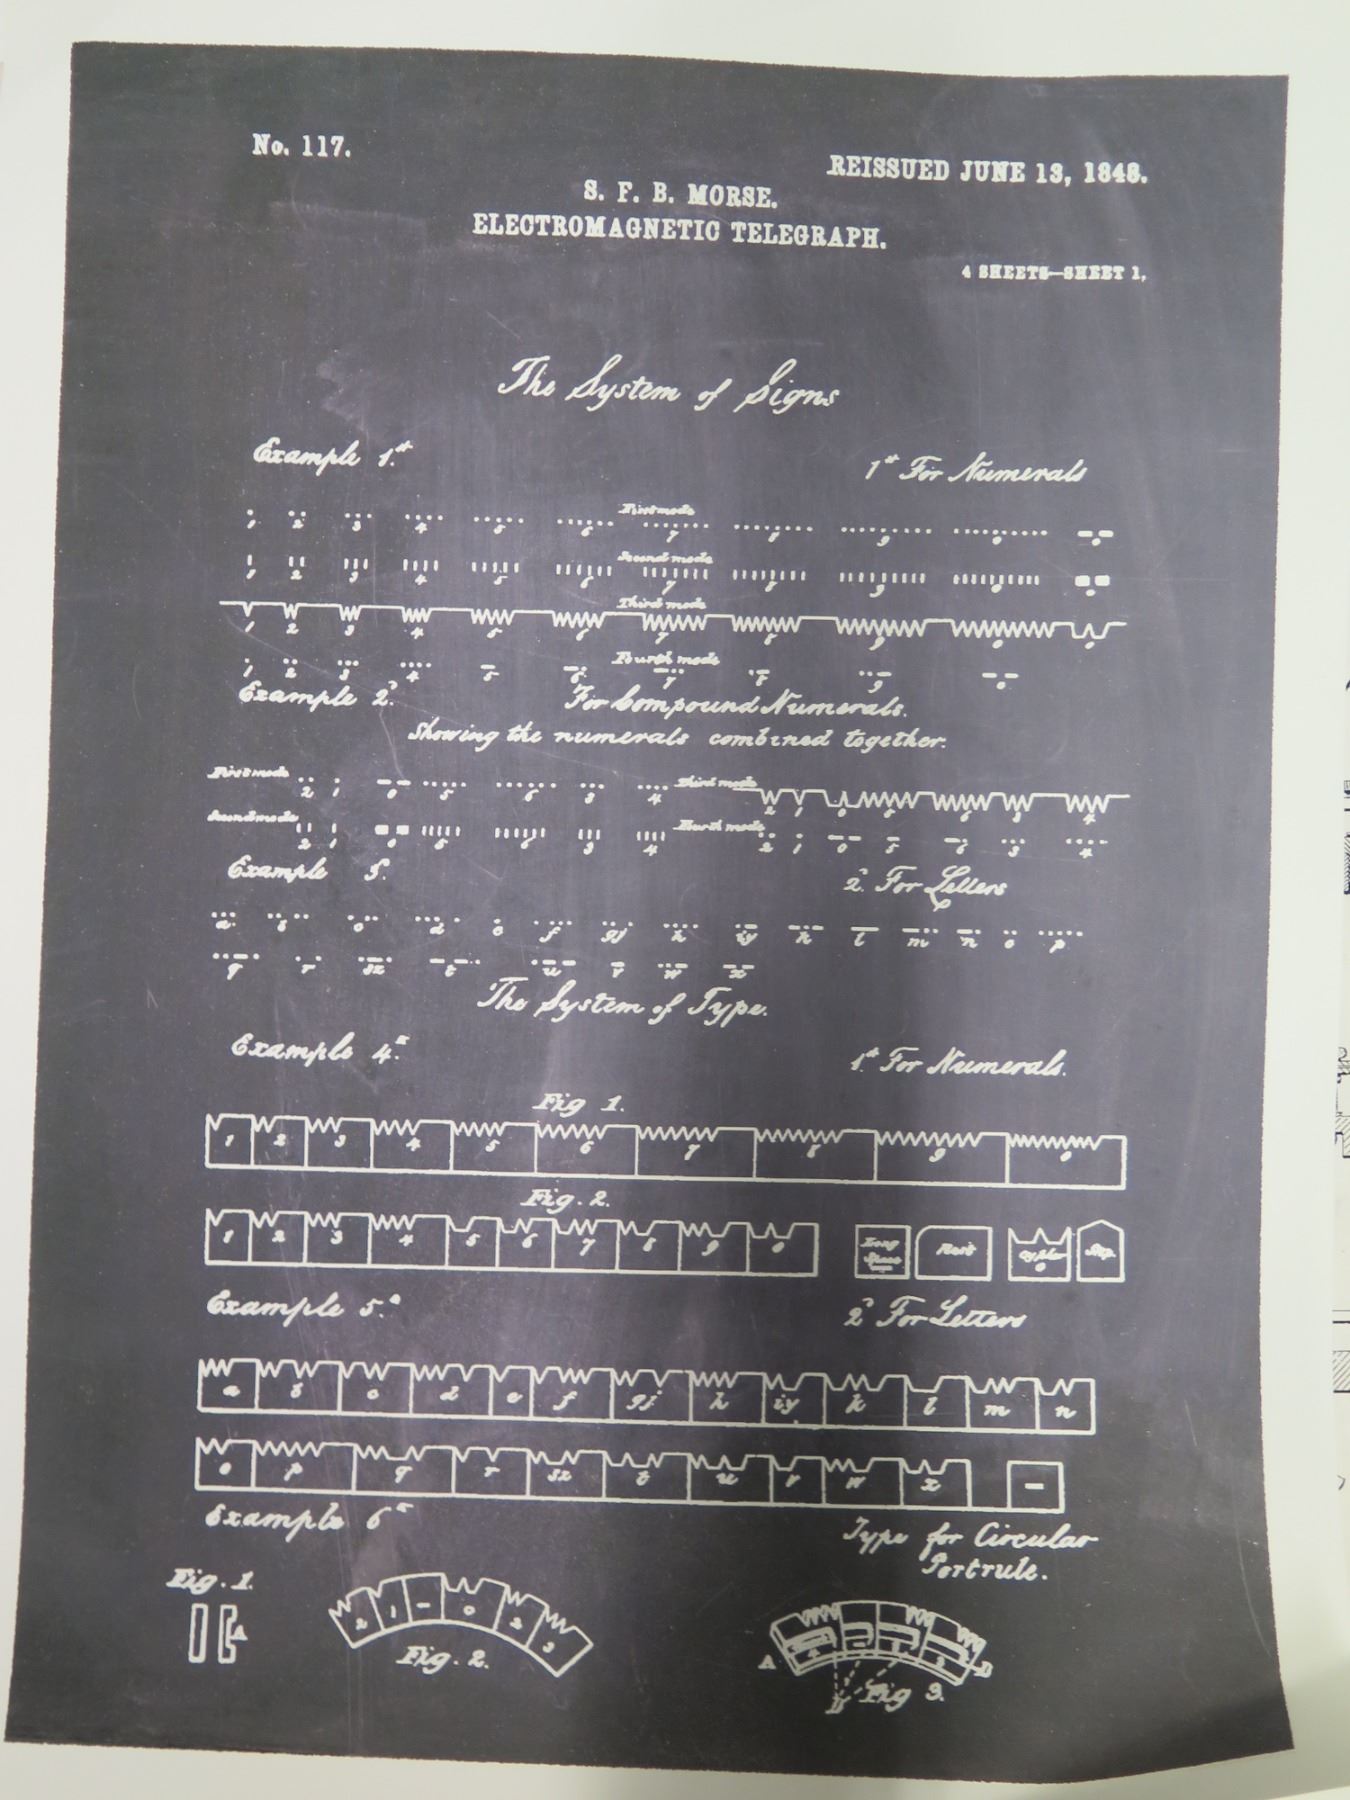 No. 117.
REISSUED JUNE 13, 1848.
S. F. B. MORSE.
ELECTROMAGNETIC TELEGRAPH.
4 SHEETS—SHEET 1,
The System of Signs
Example 1.st
1st For Numerals
First mode
1 2 3 4 5 6 7 8 9 0 0
Second mode
1 2 3 4 5 6 7 8 9 0 0
Third mode
1 2 3 4 5 6 7 8 9 0 0
Fourth mode
1 2 3 4 5 6 7 8 9 0
Example 2.d For Compound Numerals.
Showing the numerals combined together.
First mode 2 1 0 5 6 3 4 Third mode 2 1 0 5 6 3 4
Second mode 2 1 0 5 6 3 4 Fourth mode 2 1 0 5 6 3 4
Example 3. 2d For Letters
a b c d e f gj h iy k l m n o p
q r sz t u v w x
The System of Type.
Example 4.th 1st For Numerals.
Fig 1.
1 2 3 4 5 6 7 8 9 0
Fig. 2.
1 2 3 4 5 6 7 8 9 0 Long Space Rest Cypher 0 Stop.
Example 5.th 2d For Letters
a b c d e f gj h iy k l m n
o p q r sz t u v w x
Example 6th Type for Circular
Portrule.
Fig. 1.
A
2 1 0 2 3
Fig. 2.
A B
Fig 3.